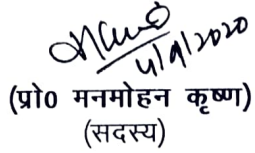 4/9/2020
(प्रो0 मनमोहन कृष्ण)
(सदस्य)